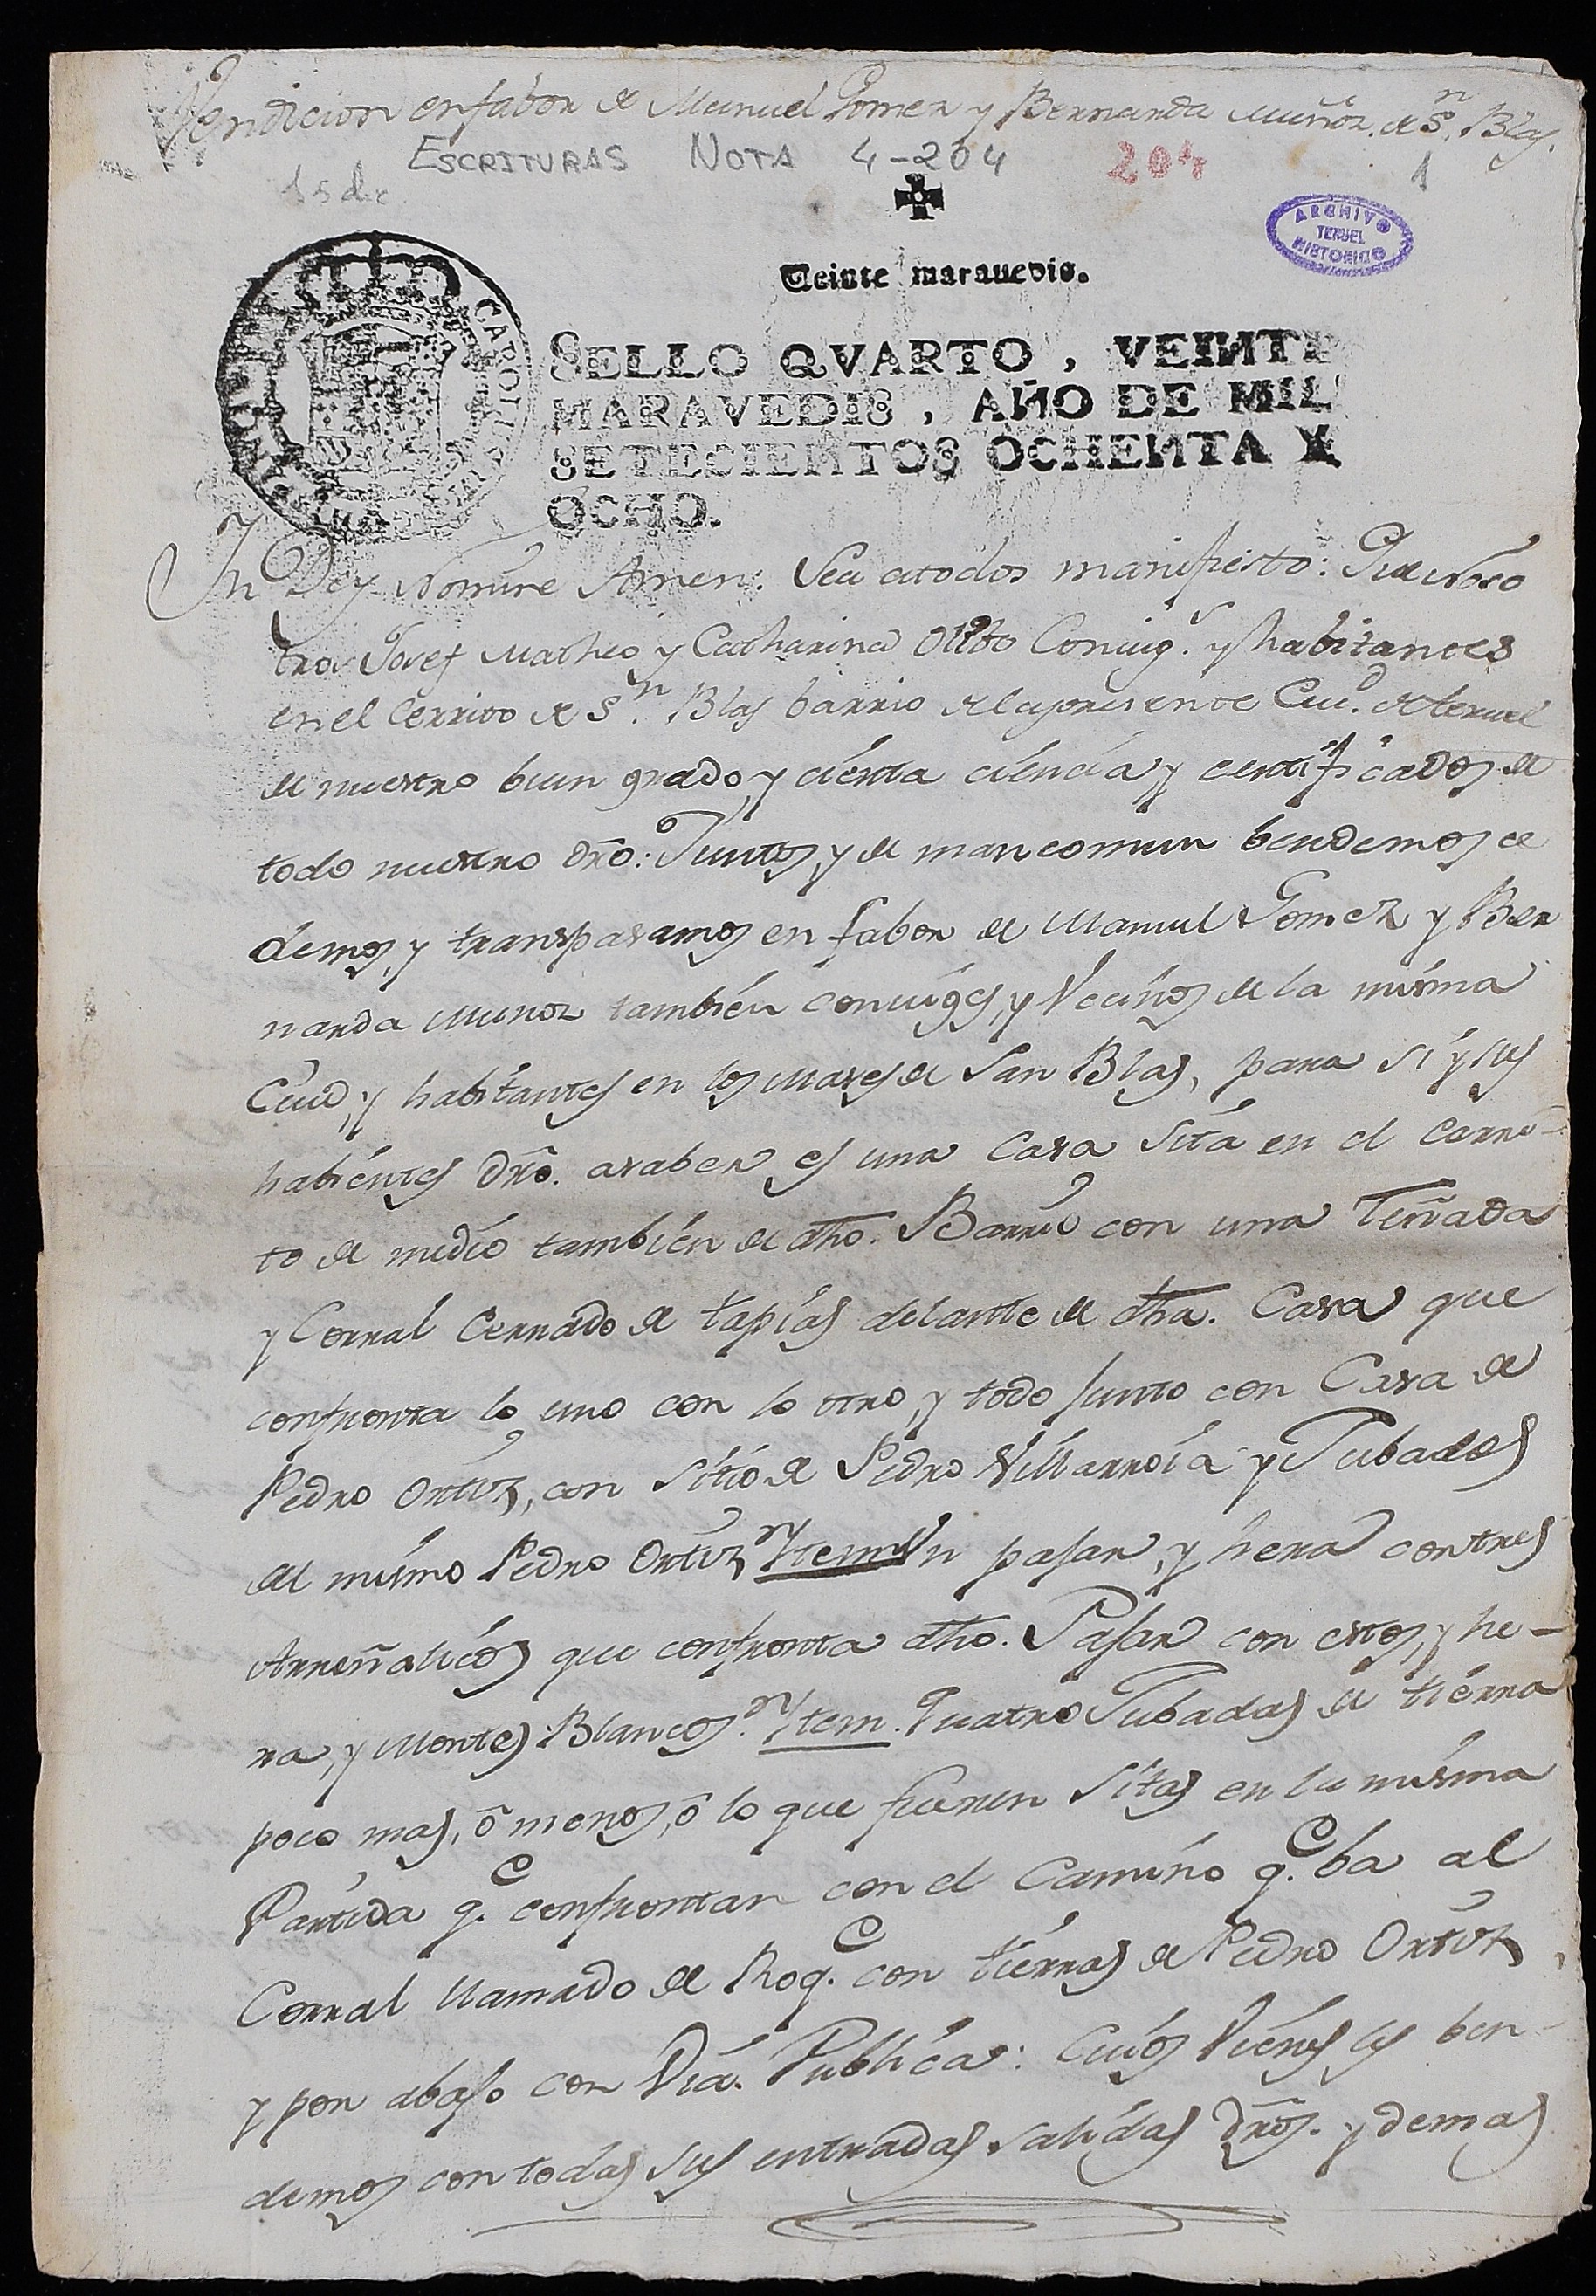 Vendicion en fabor de Manuel Gomez y Bernarda Muñoz. de Sn. Blas.
ESCRITURAS NOTA 4-204 204 1
15 dic
ARCHIVO
TERUEL
HISTORICO
Veinte marauedis.
CAROLUS
SELLO QVARTO, VEINTE
MARAVEDIS, AÑO DE MIL
SETECIENTOS OCHENTA Y
OCHO.
In Dey Nomine Amen: Sea atodos manifiesto: Que noso
tros Josef Matheo y Catharina Coniug.s y habitantes
en el Cerrito de Sn. Blas barrio dela presente Ciud. de teruel
de nuestro buen grado, y cierta ciencia y certificados de
todo nuestro dro: Juntos, y de mancomun bendemos ce
demos, y transpasamos en fabor de Manuel Gomez y Ber
narda Munoz tambien coniuges, y Vecinos de la misma
Ciud, y habitantes en los Mases de San Blas, para si y sus
habientes dro. asaber es una Casa sita en el Cerri-
to de medio tambien de dho. Barrio con una Teñada
y Corral Cerrado de tapias delante de dha. Casa que
confronta lo uno con lo otro, y todo junto con Casa de
Pedro Ortiz, con sitio de Pedro Villarroia y Jubadas
del mismo Pedro Ortiz Ytem Un pajar, y hera con tres
Arreñalicos que confronta dho. Pajar con estos, y he-
ra, y Montes Blancos. Ytem. Quatro Jubadas de tierra
poco mas, ô menos, ô lo que fueren sitas en la misma
Partida q.e confrontan con el Camino q.e ba al
Corral llamado de Roq.e con tierras de Pedro Ortiz,
y por abajo con Via. Publica: Cuios Vienes les ben-
demos con todas sus entradas salidas dros. y demas